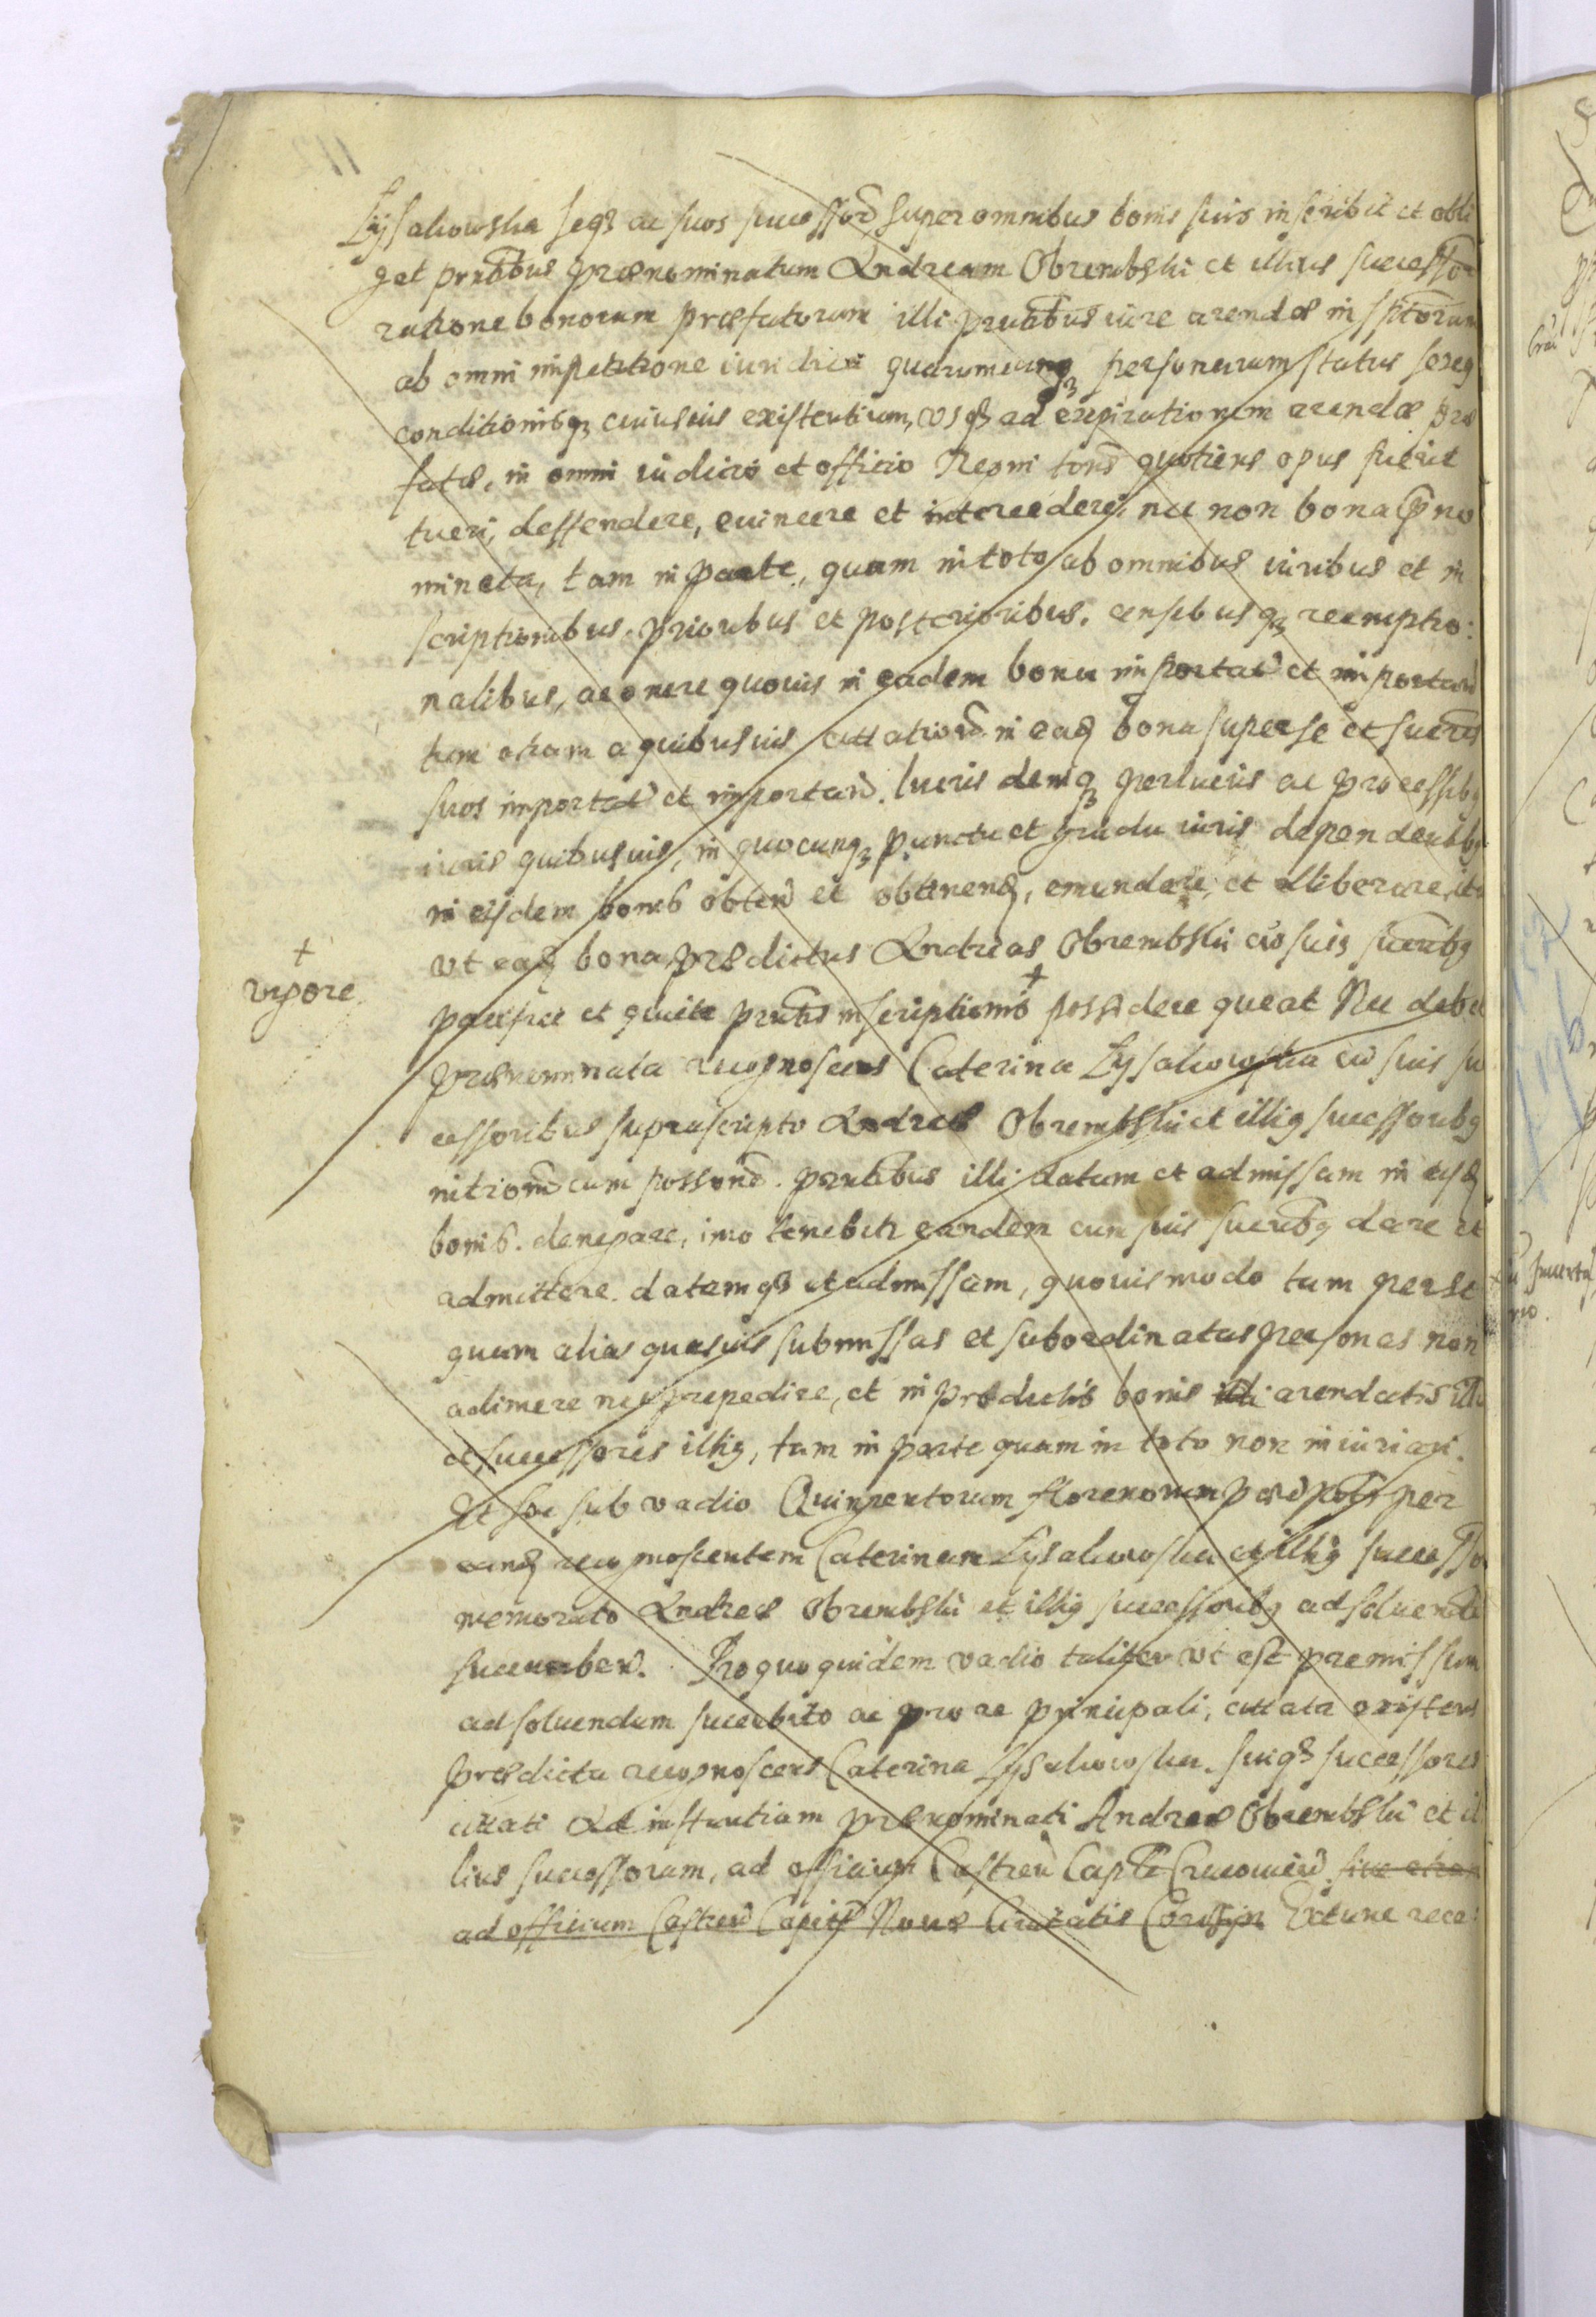 Lysakowska seqz ac suos successor̃ super omnibus bonis suis inscribit et obli
gat prntibus prænominatum Andream Obrembski et illius successor̃
ratione bonorum præfatorum illi prntibus iure arendæ inscritorum
ab omni impetitione iuridica quarumcunqz personarum status sexeq
conditionisqz cuiusuis existentium, vsqz ad expirationem arendæ præ
fatæ, in omni iudicio et officio Regni tons quotiens opus fuerit
tueri, deffendere, euincere et intercedere, nec non bona præno
minata, tam in parte, quam in toto ab omnibus iuribus et in
scriptionibus prioribus et posterioribus, censibusqz reemptio:
nalibus, ac onere quouis in eadem bona importat̃ et importand̃
tum etiam a quibusuis cittatioñ in eaq bona super se et succres
suos importat̃ et importan̄. lucris demqz perlucris ac processibq
iuris quibusuis, in quocunqz punctu et gradu iuris dependentibq
in eisdem bonis obten̄ et obtinenq, emundare, et elliberare, ita
vt eaq bona prædictus Andreas Obrembski cũ suis sucribq
pacifice et quiete prntis inscriptionis + possidere queat Nec debet
+ vigore
prænominata recognoscens Caterina Lysakowska cũ suis suc
cessoribus suprascripto Andreæ Obrembski et illiq successoribq
intromis cum possone. prntibus illi datam et admissam in eisq
bonis. denegare, imo tenebitr eandem cum suis sucribq dare et
admittere. datamqz et admissam, quouismodo tam per se
quam alias quasuis submissas et subordinatas personas non
adimere nec prepedire, et in prædictis bonis illi arendatis illũ
et successores illiq, tam in parte quam in toto non iniuriari.
Et hoc sub vadio Quingentorum florenorum per
eanq recognoscentem Caterinam Lysakowska et illiq successo
memorato Andreæ Obrembski et illiq successoribq adsoluendi
succumben̄. Pro quo quidem vadio taliter vt est premissum
adsoluendum succubito ac pro re principali, cittata existens
prædicta recognoscens Caterina Lysakowska. suiqz successores
cittati Ad instantiam prænominati Andreæ Obrembski et il
lius successorum, ad officium Castren̄ Captle Cracouien̄ siue etiam
ad officium Castren̄ Capitl Nouæ Ciuitatis Corczyn Extunc rece: